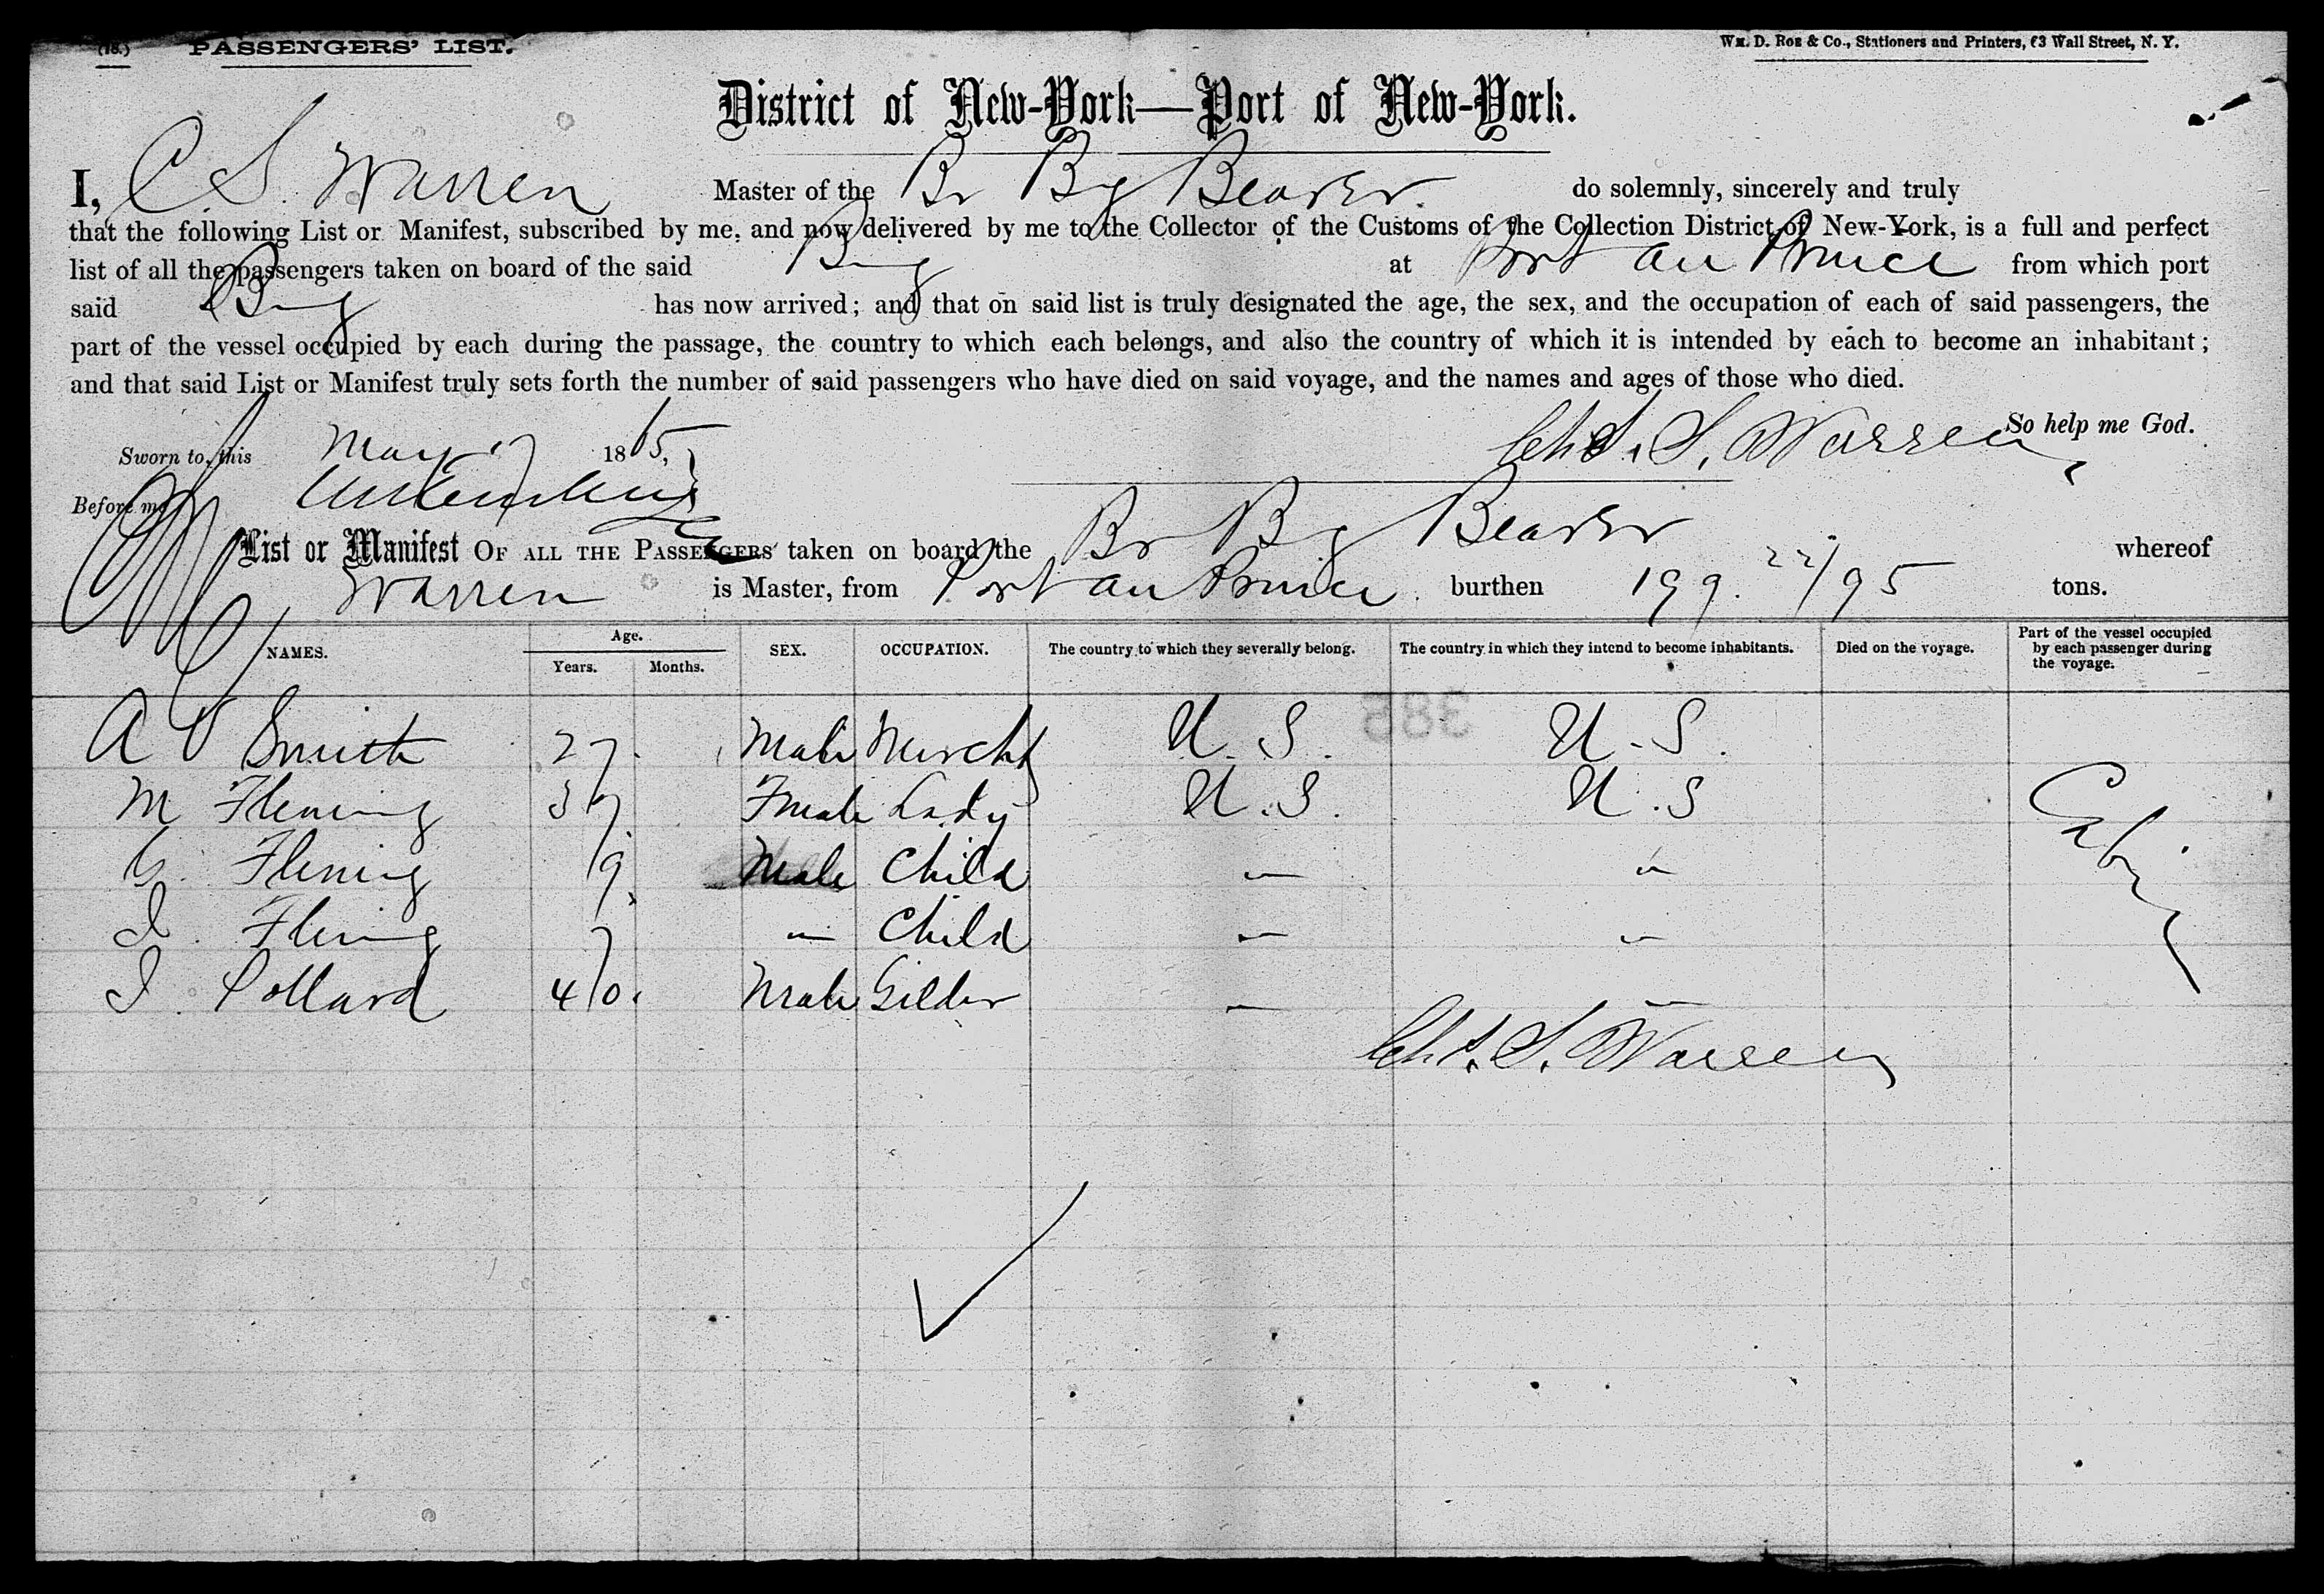 (18.) PASSENGERS' LIST. Wm. D. Roe & Co., Stationers and Printers, 63 Wall Street, N. Y.
District of New-York—Port of New-York.
I, C. S. Warren Master of the Br Bg Beaver. do solemnly, sincerely and truly
that the following List or Manifest, subscribed by me, and now delivered by me to the Collector of the Customs of the Collection District of New-York, is a full and perfect
list of all the passengers taken on board of the said Brig at Port au Prince from which port
said Brig has now arrived; and that on said list is truly designated the age, the sex, and the occupation of each of said passengers, the
part of the vessel occupied by each during the passage, the country to which each belongs, and also the country of which it is intended by each to become an inhabitant;
and that said List or Manifest truly sets forth the number of said passengers who have died on said voyage, and the names and ages of those who died.
So help me God.
Sworn to, this May 17 1865, Chs. S. Warren
Before me
List or Manifest OF ALL THE PASSENGERS taken on board the Br Bg Beaver whereof
Warren is Master, from Port au Prince. burthen 199. 22/95 tons.
NAMES. Age. Years. Months. SEX. OCCUPATION. The country to which they severally belong. The country in which they intend to become inhabitants. Died on the voyage. Part of the vessel occupied by each passenger during the voyage.
A V Smith 27. Male Mercht U. S. U. S.
M Fleming 37 Fmale Lady U. S. U. S
G. Fleming 9. Male Child " "
J. Fleming 7 " Child " "
J. Pollard 40. Male Gilder " "
Cabin
Chs. S. Warren
385